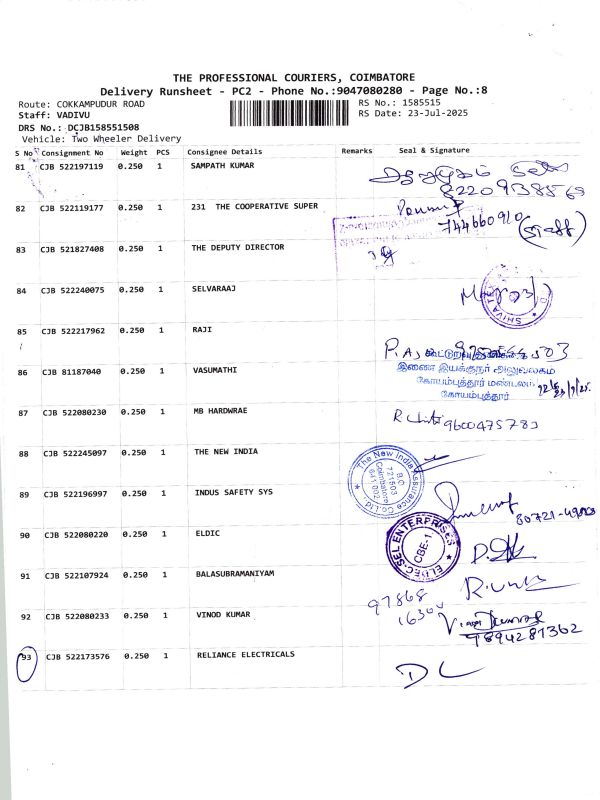 THE PROFESSIONAL COURIERS, COIMBATORE
Delivery Runsheet - PC2 - Phone No.:9047080280 - Page No.:8
Route: COKKAMPUDUR ROAD
RS No.: 1585515
Staff: VADIVU
RS Date: 23-Jul-2025
DRS No.: DCJB158551508
Vehicle: Two Wheeler Delivery
S No Consignment No Weight PCS Consignee Details Remarks Seal & Signature
81 CJB 522197119 0.250 1 SAMPATH KUMAR
82 CJB 522119177 0.250 1 231 THE COOPERATIVE SUPER
(Staff)
83 CJB 521827408 0.250 1 THE DEPUTY DIRECTOR
84 CJB 522240075 0.250 1 SELVARAAJ
SHIVA
85 CJB 522217962 0.250 1 RAJI
86 CJB 81187040 0.250 1 VASUMATHI
இணை இயக்குநர் அலுவலகம்
கோயம்புத்தூர் மண்டலம்
கோயம்புத்தூர்
87 CJB 522080230 0.250 1 MB HARDWRAE
9600475783
88 CJB 522245097 0.250 1 THE NEW INDIA
The New India Assurance Co.Ltd
B.O
721503
Coimbatore
641 002
89 CJB 522196997 0.250 1 INDUS SAFETY SYS
90 CJB 522080220 0.250 1 ELDIC
ELDEC-SEL ENTERPRISES
CBE-1
91 CJB 522107924 0.250 1 BALASUBRAMANIYAM
97868
92 CJB 522080233 0.250 1 VINOD KUMAR
9894281362
93 CJB 522173576 0.250 1 RELIANCE ELECTRICALS